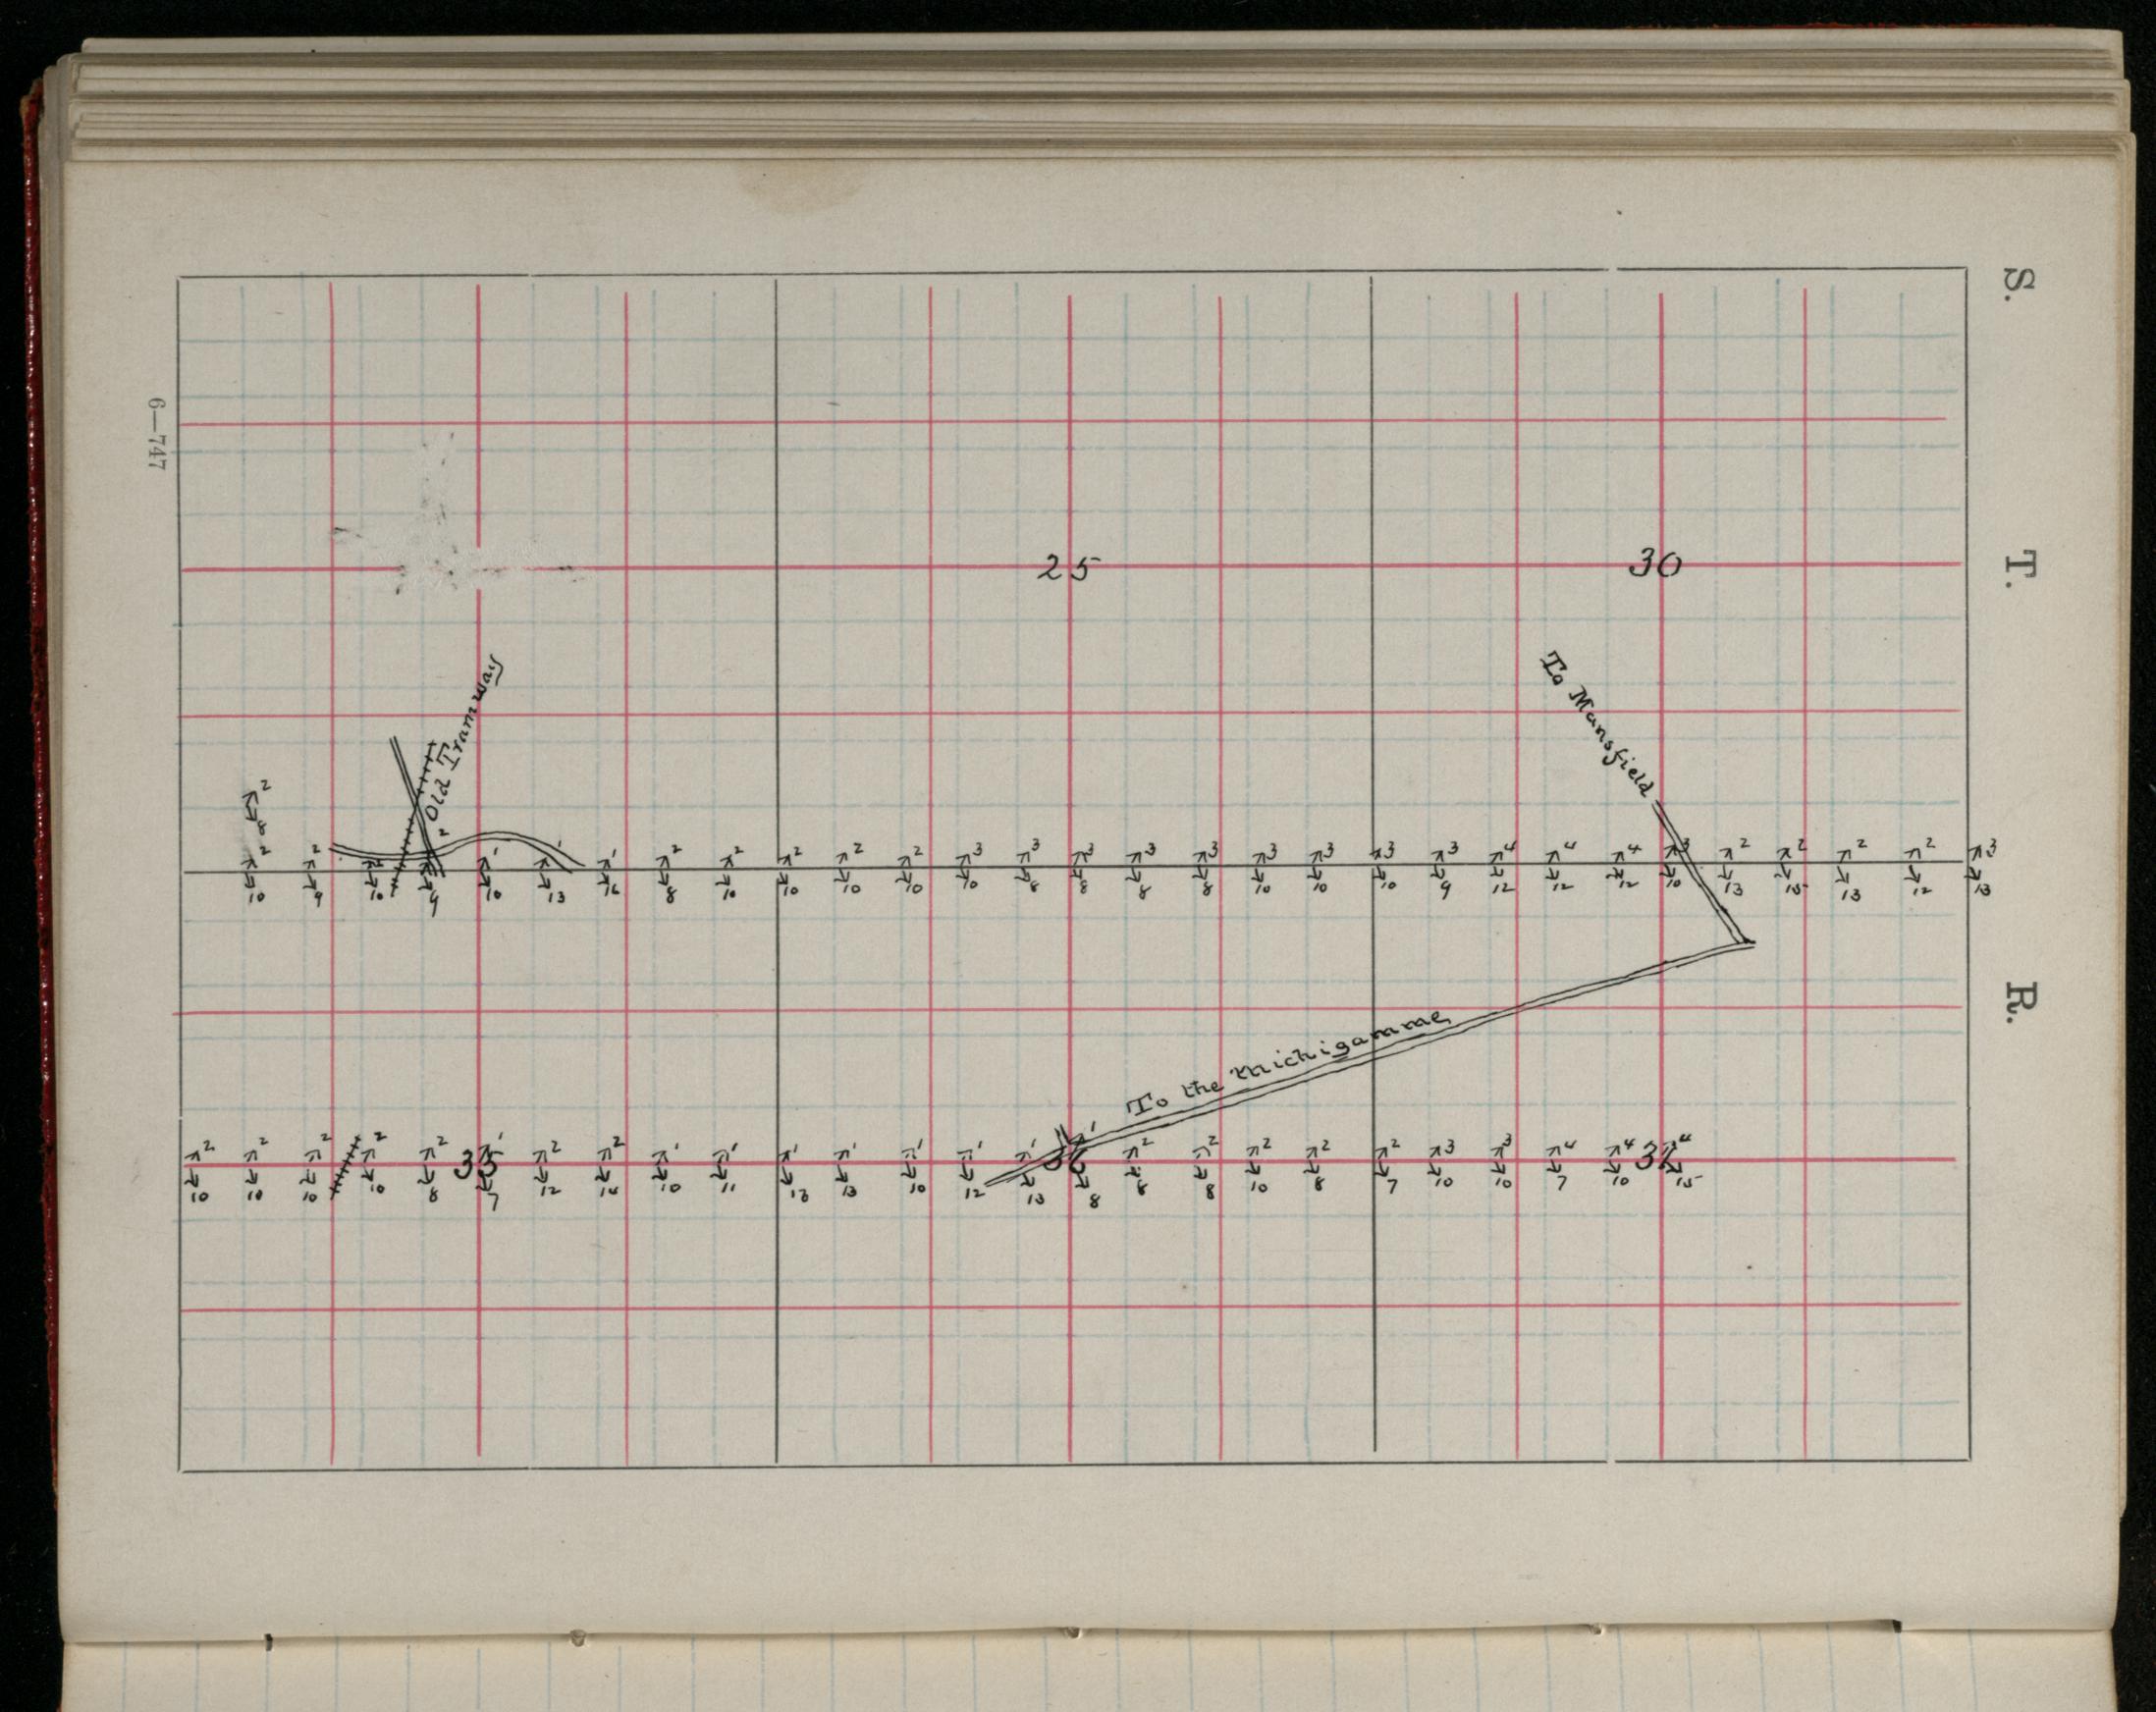 S.
T.
R.
6—747
25
30
Old Tramway
To Mansfield
2
8
2 2 2 2 1 1 1 2 2 2 2 2 3 3 3 3 3 3 3 3 3 4 4 4 3 2 2 2 2 3
10 9 10 9 10 13 16 8 10 10 10 10 10 8 8 8 8 10 10 10 9 12 12 12 10 13 15 13 12 13
To the Michigamme
2 2 2 2 2 1 2 2 1 1 1 1 1 1 1 1 2 2 2 2 2 3 3 4 4 4
35 36 31
10 10 10 10 8 7 12 14 10 11 13 13 10 12 13 8 8 8 10 8 7 10 10 7 10 15